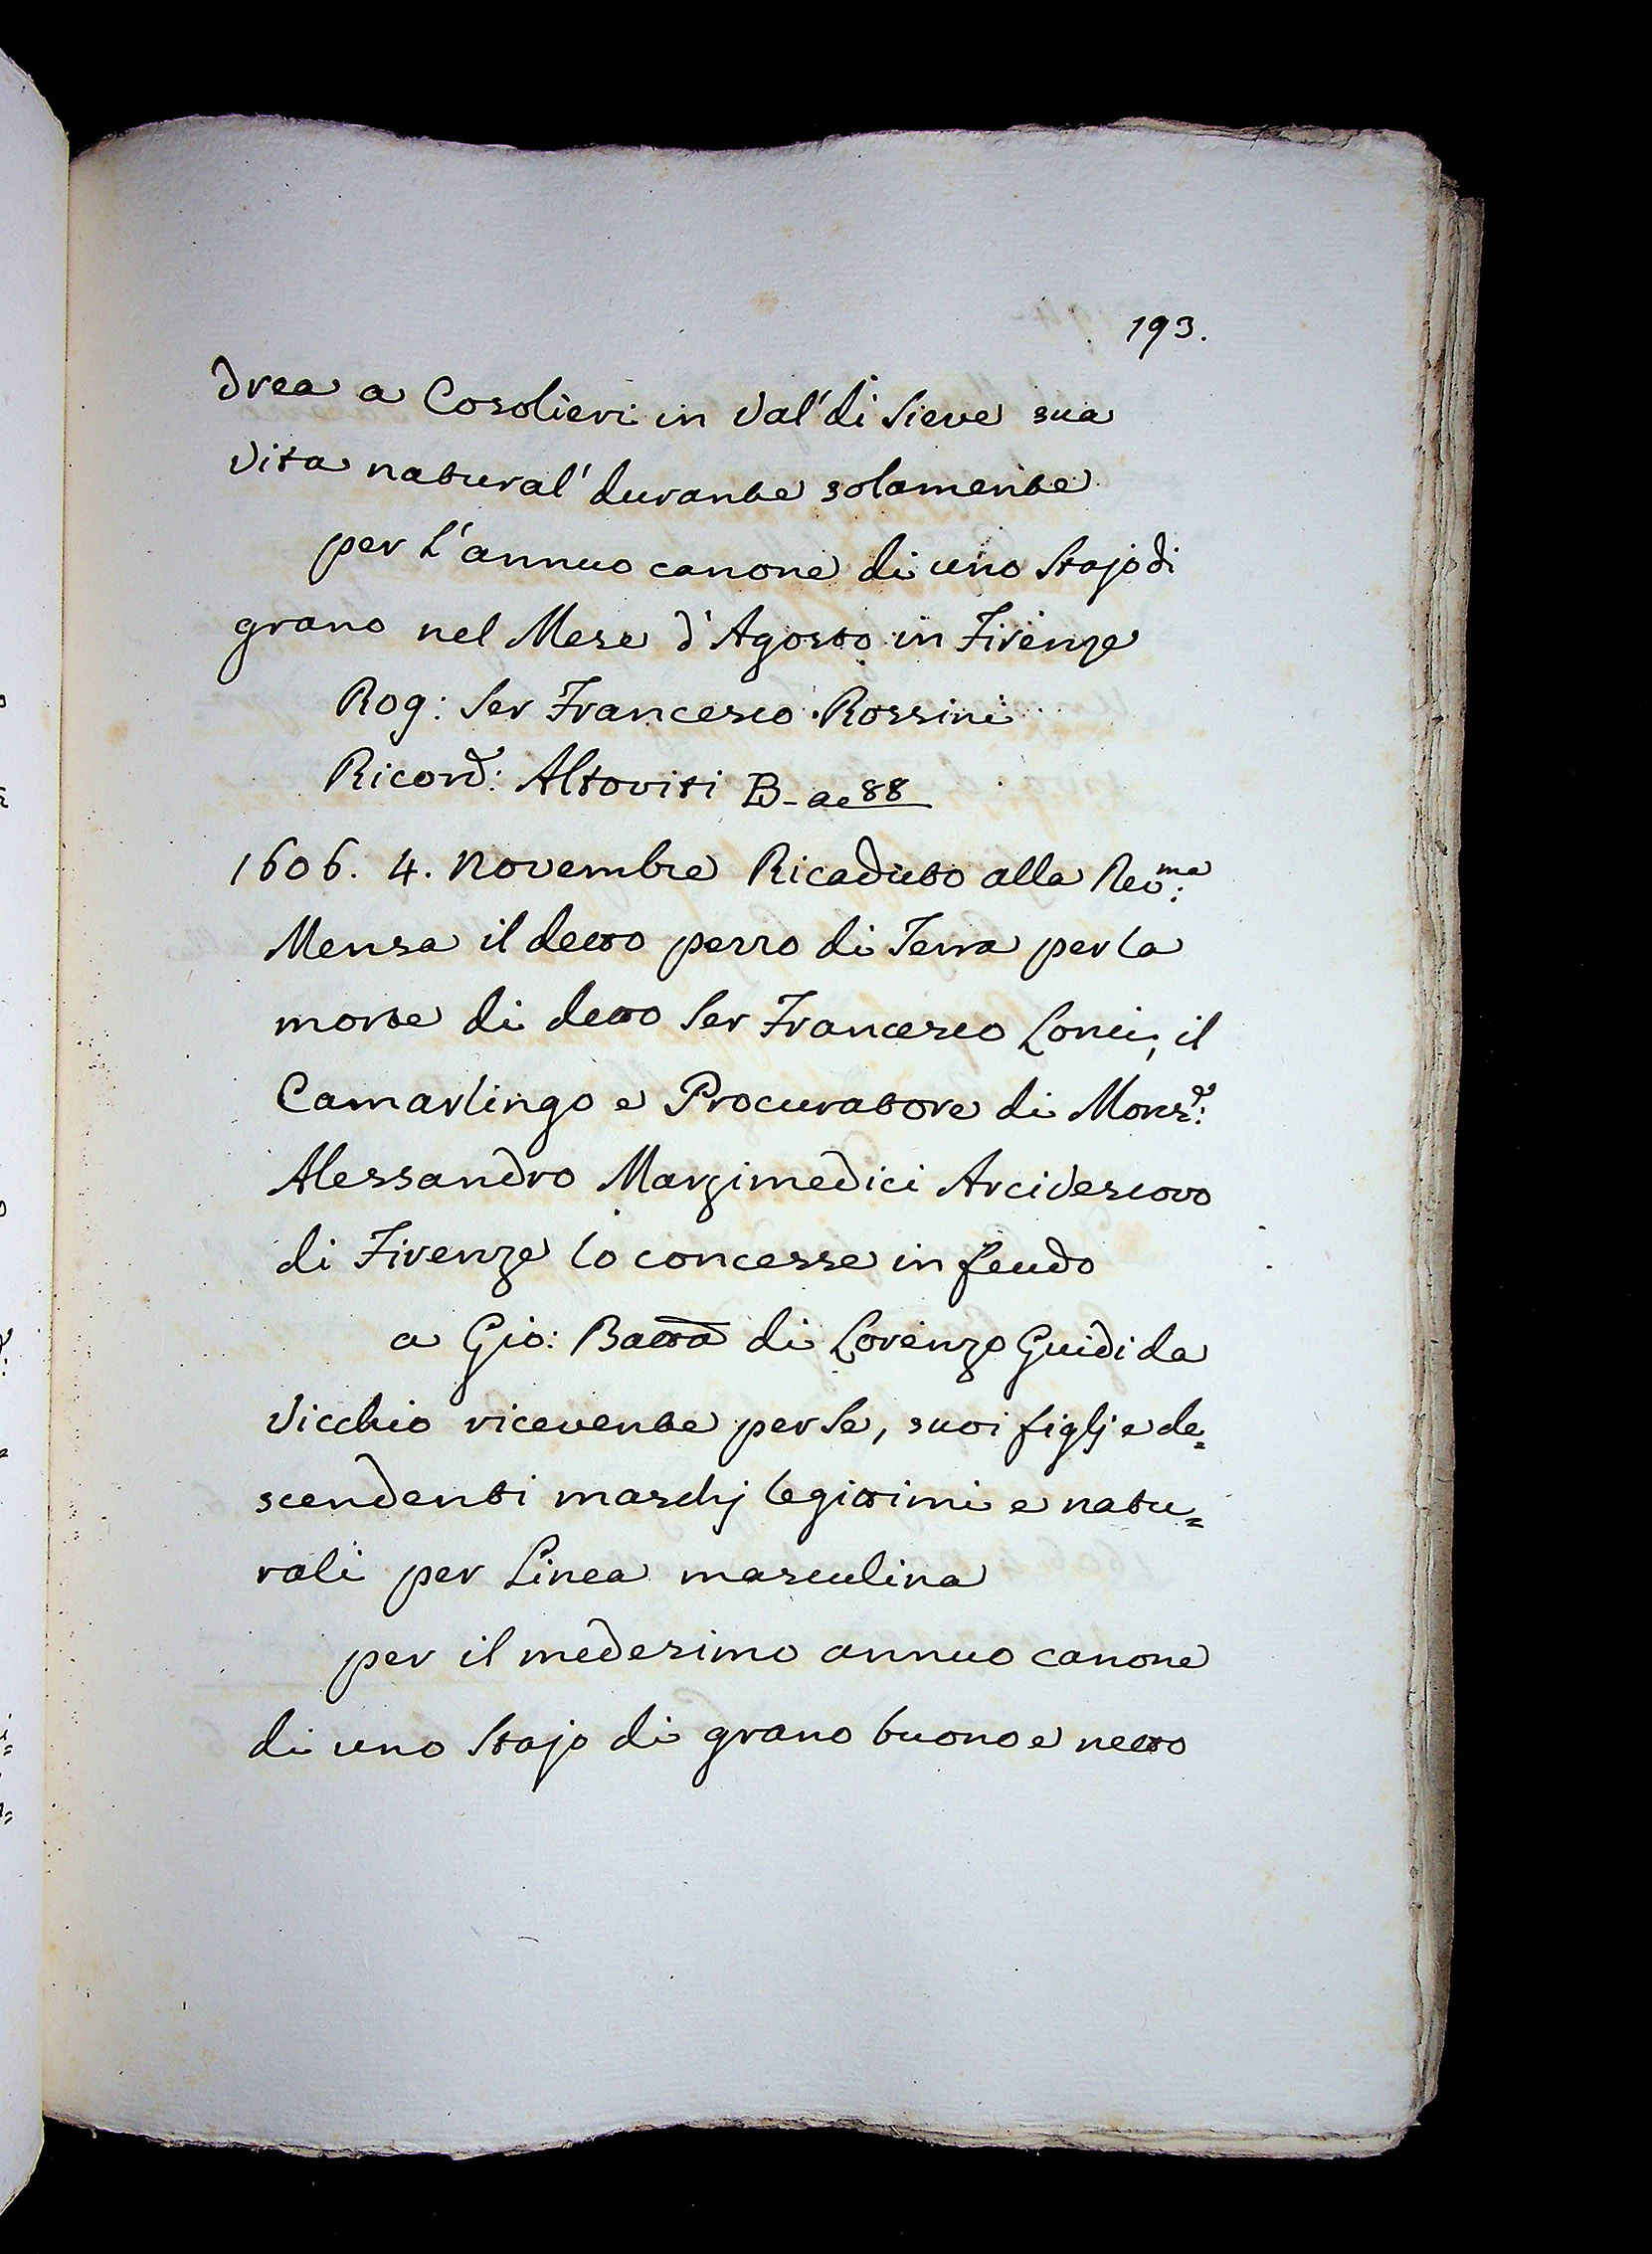 193.
drea a Cosolieri in Val' di Sieve sua
vita natural' durante solamente
per l'annuo canone di uno Stajo di
grano nel Mese d'Agosto in Firenze
Rog: Ser Francesco Rossini
Ricord: Altoviti B - a c 88
1606. 4. Novembre Ricaduto alla Rev.ma
Mensa il detto pezzo di Terra per la
morte di detto Ser Francesco Lonci, il
Camarlingo e Procuratore di Monsr:
Alessandro Marzimedici Arcivescovo
di Firenze lo concesse in feudo
a Gio: Batta di Lorenzo Guidi da
Vicchio ricevente per se, suoi figlj e de=
scendenti maschj legittimi e natu=
rali per Linea masculina
per il medesimo annuo canone
di uno Stajo di grano buono e netto